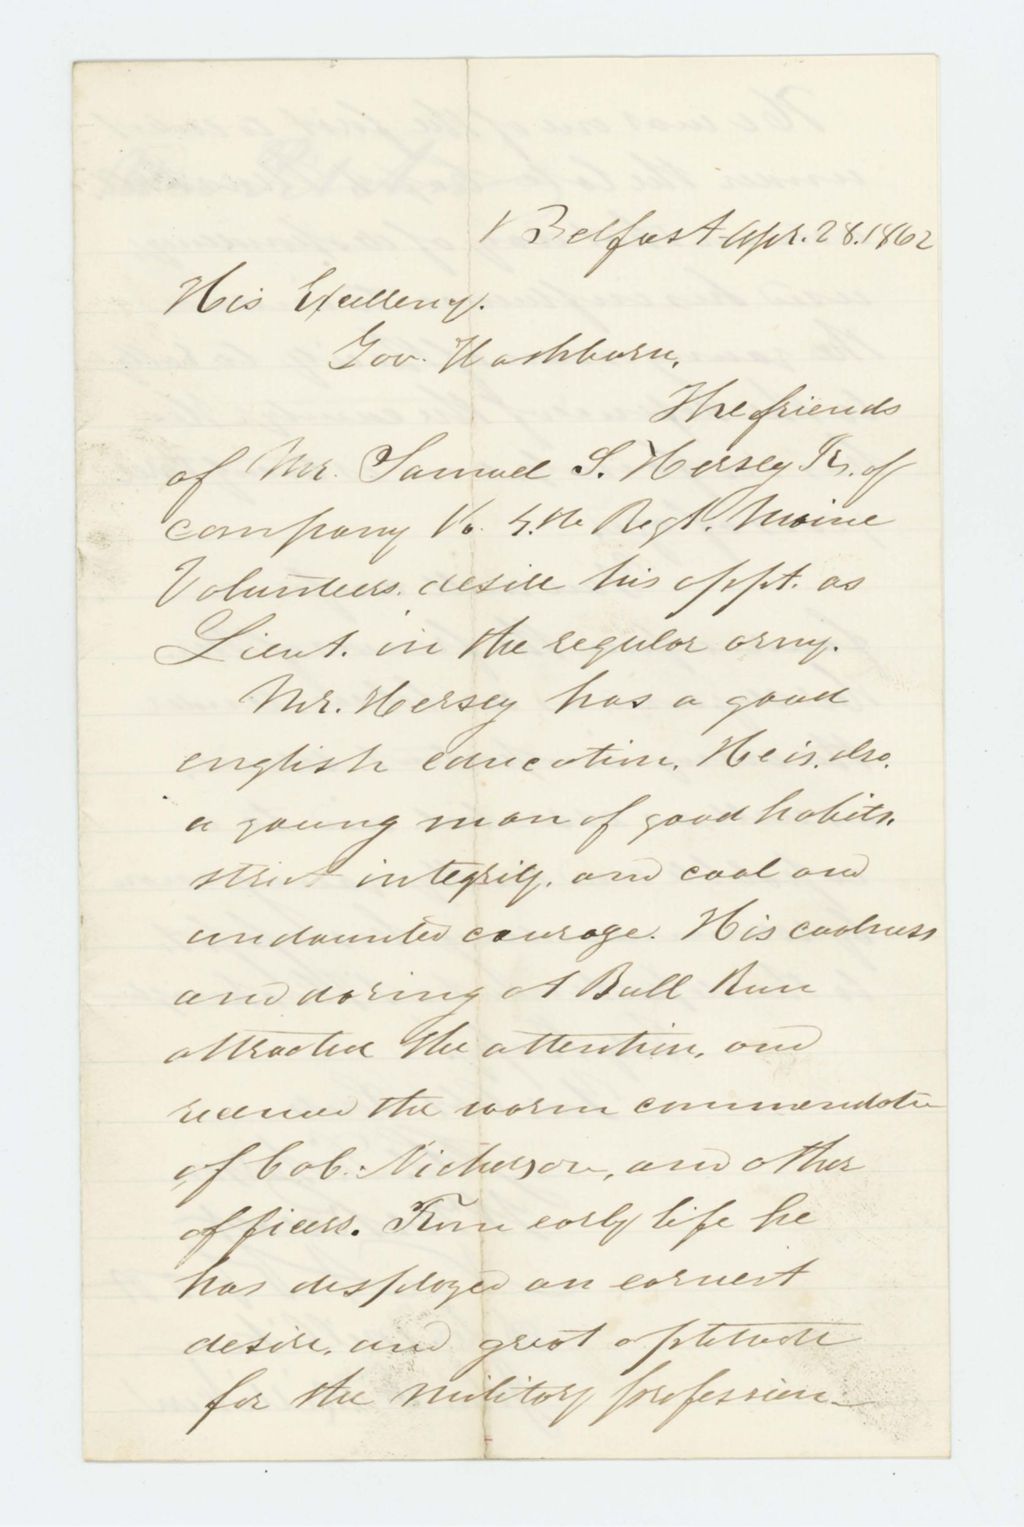 Belfast Apr. 28. 1862
His Excellency.
Gov. Washburn,
The friends
of Mr. Samuel S. Hersey Jr. of
company K. 4.th Regt. Maine
Volunteers. desire his appt. as
Lieut. in the regular army.
Mr. Hersey has a good
english education. He is, also.
a young man of good habits.
strict integrity. and cool and
undaunted courage. His coolness
and daring at Bull Run
attracted the attention, and
received the warm commendation
of Col. Nickerson, and other
officers. From early life he
has displayed an earnest
desire, and great aptitude
for the military profession.